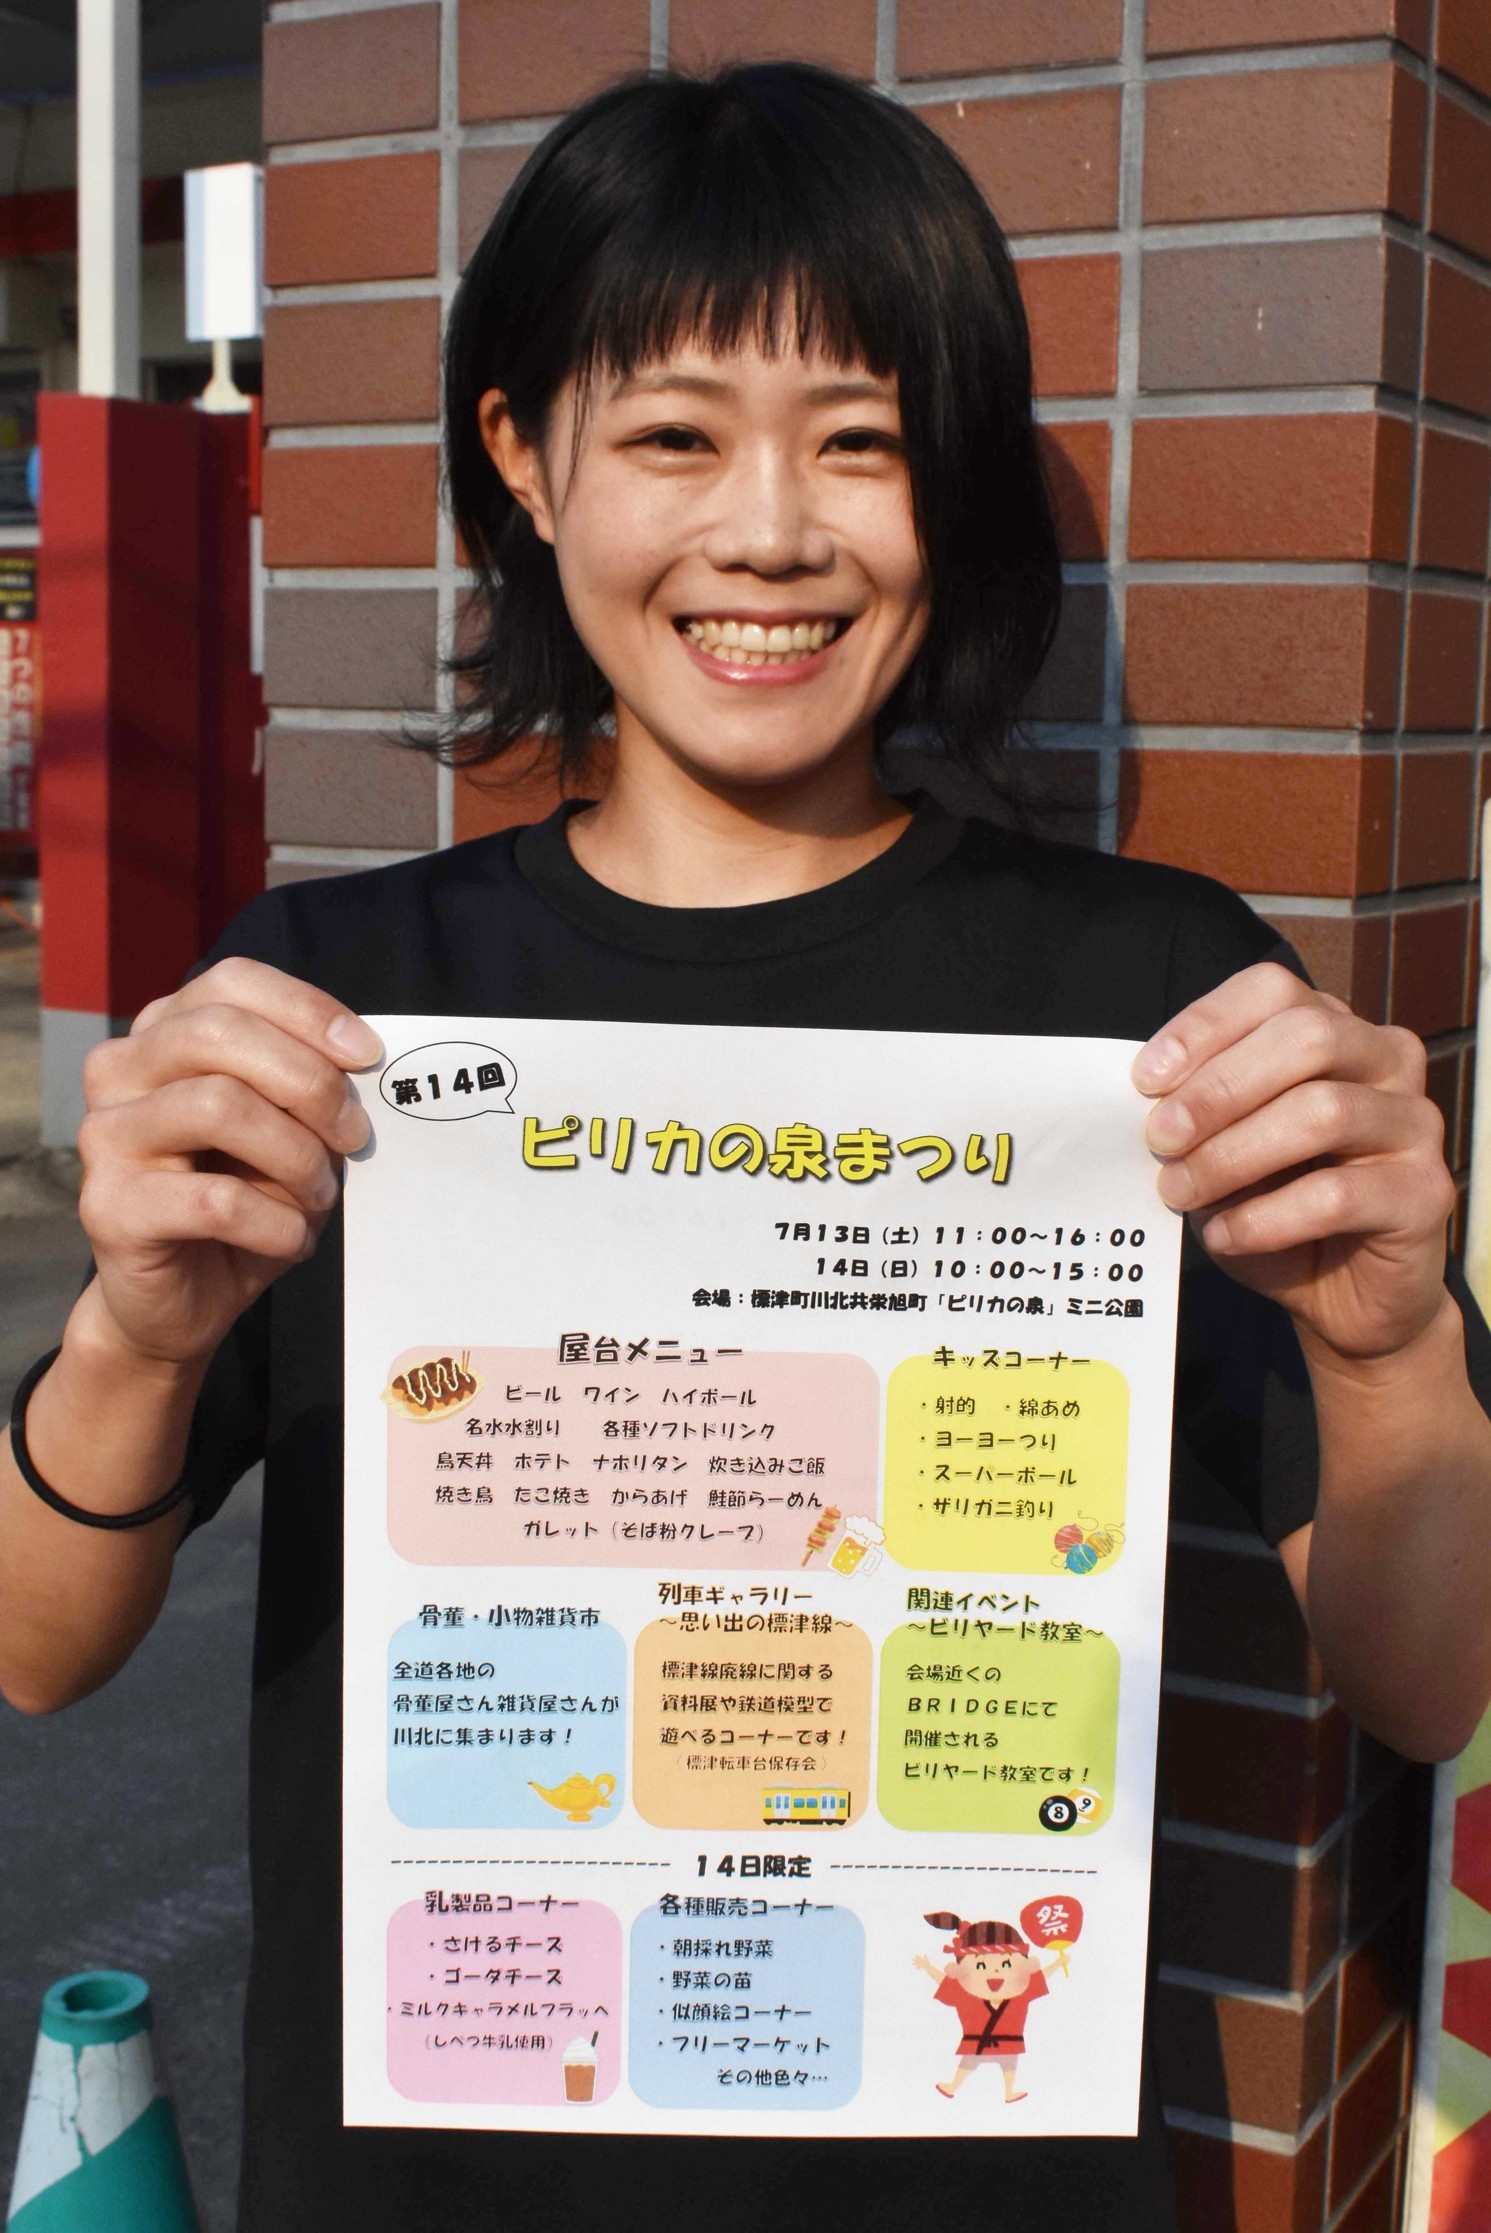 第14回
ピリカの泉まつり
7月13日（土）11：00～16：00
14日（日）10：00～15：00
会場：標津町川北共栄旭町「ピリカの泉」ミニ公園
屋台メニュー
ビール　ワイン　ハイボール
名水水割り　各種ソフトドリンク
鳥天丼　ポテト　ナポリタン　炊き込みご飯
焼き鳥　たこ焼き　からあげ　鮭節らーめん
ガレット（そば粉クレープ）
キッズコーナー
・射的　・綿あめ
・ヨーヨーつり
・スーパーボール
・ザリガニ釣り
骨董・小物雑貨市
全道各地の
骨董屋さん雑貨屋さんが
川北に集まります！
列車ギャラリー
～思い出の標津線～
標津線廃線に関する
資料展や鉄道模型で
遊べるコーナーです！
（標津転車台保存会）
関連イベント
～ビリヤード教室～
会場近くの
ＢＲＩＤＧＥにて
開催される
ビリヤード教室です！
8
9
14日限定
乳製品コーナー
・さけるチーズ
・ゴーダチーズ
・ミルクキャラメルフラッペ
（しべつ牛乳使用）
各種販売コーナー
・朝採れ野菜
・野菜の苗
・似顔絵コーナー
・フリーマーケット
その他色々…
祭